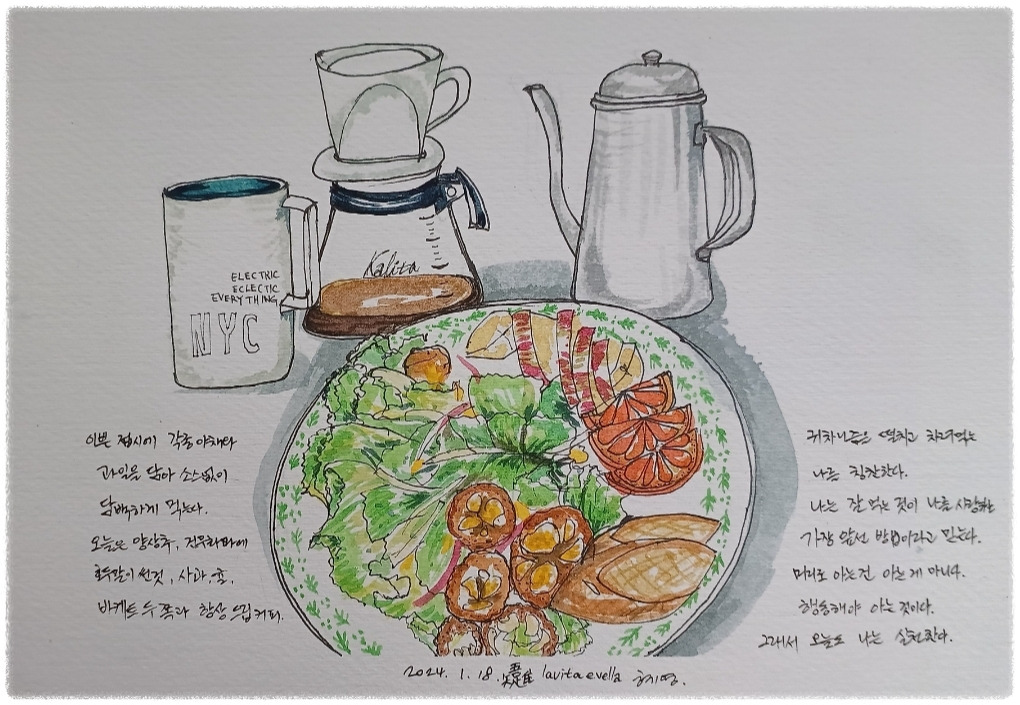 ELECTRIC
ECLECTIC
EVERYTHING
NYC
Kalita
이쁜 접시에 각종야채와
과일을 담아 소스없이
담백하게 먹는다.
오늘은 양상추,
호두말이 썬것, 사과, 귤,
바케트 두 쪽과 항상 드립커피.
귀차니즘을 떨치고 차려먹는
나를 칭찬한다.
나는 잘 먹는 것이 나를 사랑하는
가장 앞선 방법이라고 믿는다.
머리로 아는건 아는 게 아니다.
행동해야 아는 것이다.
그래서 오늘도 나는 실천한다.
2024. 1. 18. lavitaevella